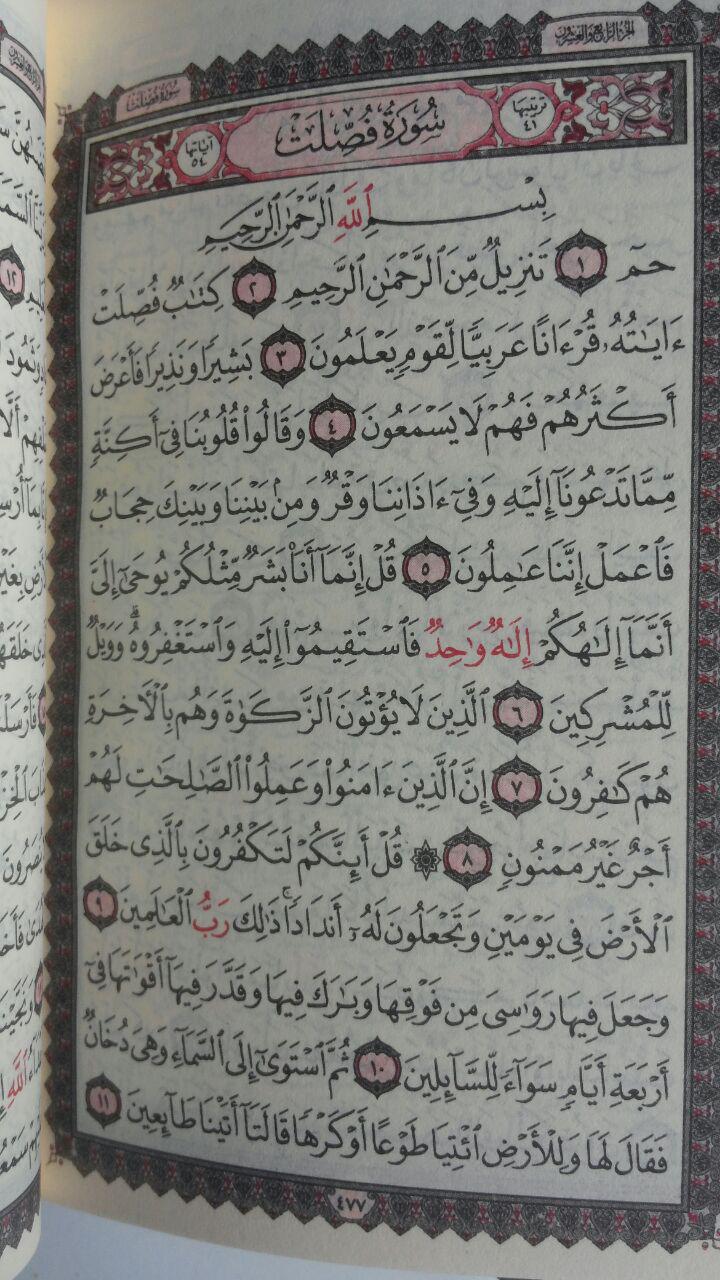 الجزء الرابع والعشرون
سورة فصلت
ترتيبها ٤١
سُورَةُ فُصِّلَتْ
آياتها ٥٤
بِسْمِ ٱللَّهِ ٱلرَّحْمَٰنِ ٱلرَّحِيمِ
حمٓ ١ تَنزِيلٌ مِّنَ ٱلرَّحْمَٰنِ ٱلرَّحِيمِ ٢ كِتَٰبٌ فُصِّلَتْ
ءَايَٰتُهُۥ قُرْءَانًا عَرَبِيًّا لِّقَوْمٍ يَعْلَمُونَ ٣ بَشِيرًا وَنَذِيرًا فَأَعْرَضَ
أَكْثَرُهُمْ فَهُمْ لَا يَسْمَعُونَ ٤ وَقَالُوا۟ قُلُوبُنَا فِىٓ أَكِنَّةٍ
مِّمَّا تَدْعُونَآ إِلَيْهِ وَفِىٓ ءَاذَانِنَا وَقْرٌ وَمِنۢ بَيْنِنَا وَبَيْنِكَ حِجَابٌ
فَٱعْمَلْ إِنَّنَا عَٰمِلُونَ ٥ قُلْ إِنَّمَآ أَنَا۠ بَشَرٌ مِّثْلُكُمْ يُوحَىٰٓ إِلَىَّ
أَنَّمَآ إِلَٰهُكُمْ إِلَٰهٌ وَٰحِدٌ فَٱسْتَقِيمُوٓا۟ إِلَيْهِ وَٱسْتَغْفِرُوهُ ۗ وَوَيْلٌ
لِّلْمُشْرِكِينَ ٦ ٱلَّذِينَ لَا يُؤْتُونَ ٱلزَّكَوٰةَ وَهُم بِٱلْـَٔاخِرَةِ
هُمْ كَٰفِرُونَ ٧ إِنَّ ٱلَّذِينَ ءَامَنُوا۟ وَعَمِلُوا۟ ٱلصَّٰلِحَٰتِ لَهُمْ
أَجْرٌ غَيْرُ مَمْنُونٍ ٨ ۞ قُلْ أَئِنَّكُمْ لَتَكْفُرُونَ بِٱلَّذِى خَلَقَ
ٱلْأَرْضَ فِى يَوْمَيْنِ وَتَجْعَلُونَ لَهُۥٓ أَندَادًا ۚ ذَٰلِكَ رَبُّ ٱلْعَٰلَمِينَ ٩
وَجَعَلَ فِيهَا رَوَٰسِىَ مِن فَوْقِهَا وَبَٰرَكَ فِيهَا وَقَدَّرَ فِيهَآ أَقْوَٰتَهَا فِىٓ
أَرْبَعَةِ أَيَّامٍ سَوَآءً لِّلسَّآئِلِينَ ١٠ ثُمَّ ٱسْتَوَىٰٓ إِلَى ٱلسَّمَآءِ وَهِىَ دُخَانٌ
فَقَالَ لَهَا وَلِلْأَرْضِ ٱئْتِيَا طَوْعًا أَوْ كَرْهًا قَالَتَآ أَتَيْنَا طَآئِعِينَ ١١
٤٧٧